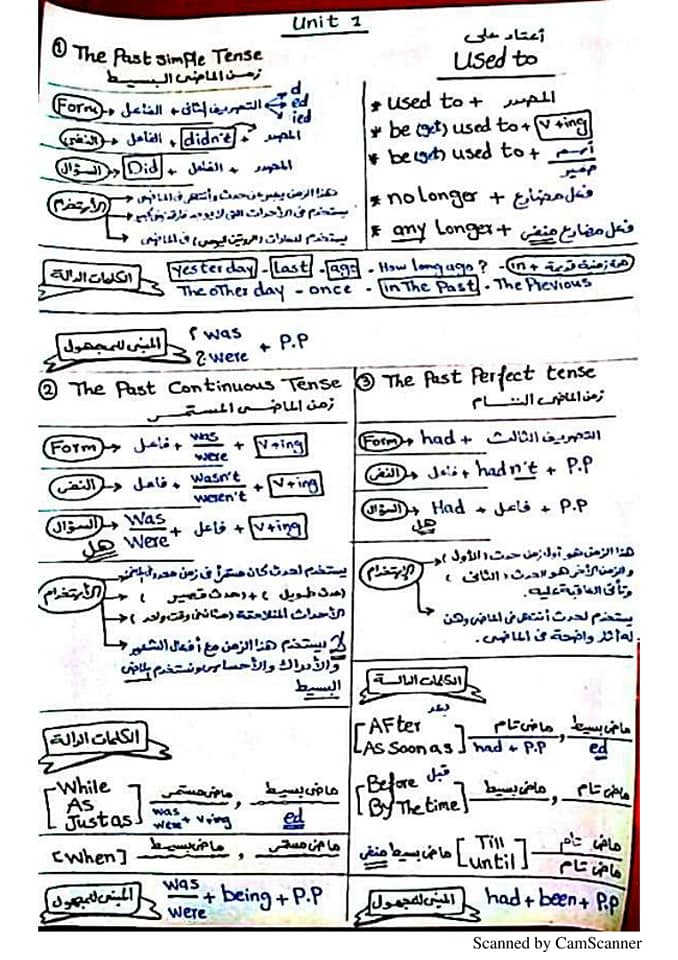 Unit 1
① The Past simple Tense
زمن الماضى البسيط
Form → الفاعل + التصريف الثانى d ed ied
النفى → الفاعل + didn't + المصدر
السؤال → Did + الفاعل + المصدر
الأستخدام → هذا الزمن يعبر عن حدث وأنتهى فى الماضى
→ يستخدم فى الأحداث التى لا يوجد
→ يستخدم للعادات (الروتين اليومى) فى الماضى
أعتاد على
Used to
* used to + المصدر
* be (get) used to + V+ing
* be (get) used to + أسم ضمير
* no longer + فعل مضارع
* any longer + فعل مضارع منفى
الكلمات الدالة
yesterday - Last - ago - How long ago? - in + مدة زمنية قديمة
The other day - once - in The Past - The Previous
المبنى للمجهول ? was ? were + P.P
② The Past Continuous Tense
زمن الماضى المستمر
Form → فاعل + was were + V+ing
النفى → فاعل + wasn't weren't + V+ing
السؤال → Was Were + فاعل + V+ing
هل
الأستخدام → يستخدم لحدث كان مستمراً فى زمن
(حدث طويل) + (حدث قصير)
الأحداث المتلاحقة (وقت واحد)
لا يستخدم هذا الزمن مع أفعال الشعور
والأدراك والأحساس ونستخدم الماضى
البسيط
الكلمات الدالة
[While As Just as] ماضى مستمر was were + V+ing , ماضى بسيط ed
[When] ماضى بسيط , ماضى مستمر
المبنى للمجهول was were + being + P.P
③ The Past Perfect tense
زمن الماضى التام
Form → had + التصريف الثالث
النفى → فاعل + hadn't + P.P
السؤال → Had + فاعل + P.P
هل
الإستخدام → هذا الزمن هو أول زمن حدث (الأول)
والزمن الأخر هو الحدث (الثانى)
يستخدم لحدث أنتهى فى الماضى
له أثار واضحة فى الماضى.
الكلمات الدالة
بعد
[AFter As Soon as] ماضى تام had + P.P , ماضى بسيط ed
قبل
[Before By The time] ماضى بسيط , ماضى تام
ماضى بسيط منفى [Till Until] ماضى تام ماضى تام
المبنى للمجهول had + been + P.P
Scanned by CamScanner